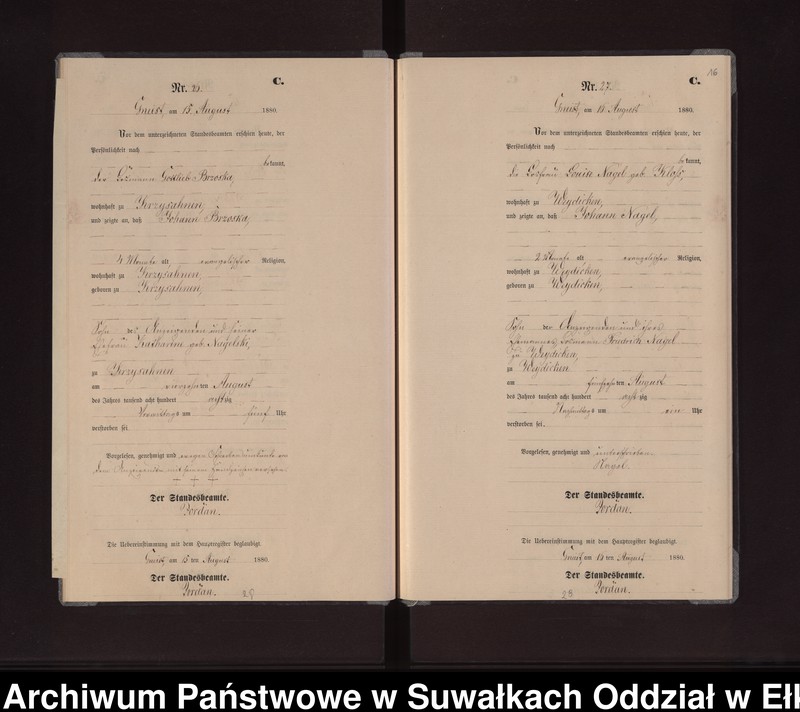 C.
Nr.
Gneist, am 15. August 1880.
Vor dem unterzeichneten Standesbeamten erschien heute, der
Persönlichkeit nach
bekannt,
der Losmann Gottlieb Brzoska,
wohnhaft zu Jerzysahnen,
und zeigte an, daß Johann Brzoska,
4 Monate alt evangelischer Religion,
wohnhaft zu Jerzysahnen,
geboren zu Jerzysahnen,
Sohn des Anzeigenden und seiner
Ehefrau Katharine geb. Nagelski,
zu Jerzysahnen
am vierzehnten August
des Jahres tausend acht hundert achtzig
Vormittags um fünf Uhr
verstorben sei.
Vorgelesen, genehmigt und wegen
dem Anzeigenden mit seinem Handzeichen versehen.
+ + +
Der Standesbeamte.
Jordan.
Die Uebereinstimmung mit dem Hauptregister beglaubigt.
Gneist, am 15 ten August 1880.
Der Standesbeamte.
Jordan.
16
C.
Nr. 27.
Gneist, am August 1880.
Vor dem unterzeichneten Standesbeamten erschien heute, der
Persönlichkeit nach
bekannt,
die Losfrau Louise Nagel geb.
wohnhaft zu Weydicken,
und zeigte an, daß Johann Nagel,
2 Monate alt evangelischer Religion,
wohnhaft zu Weydicken,
geboren zu Weydicken,
Sohn der Anzeigenden und ihres
Ehemannes, Losmann Friedrich Nagel
zu Weydicken,
zu Weydicken
am fünfzehnten August
des Jahres tausend acht hundert achtzig
Nachmittags um ein Uhr
verstorben sei.
Vorgelesen, genehmigt und unterschrieben.
Nagel.
Der Standesbeamte.
Jordan.
Die Uebereinstimmung mit dem Hauptregister beglaubigt.
Gneist, am ten August 1880.
Der Standesbeamte.
Jordan.
28
Archiwum Państwowe w Suwałkach Oddział w Ełk